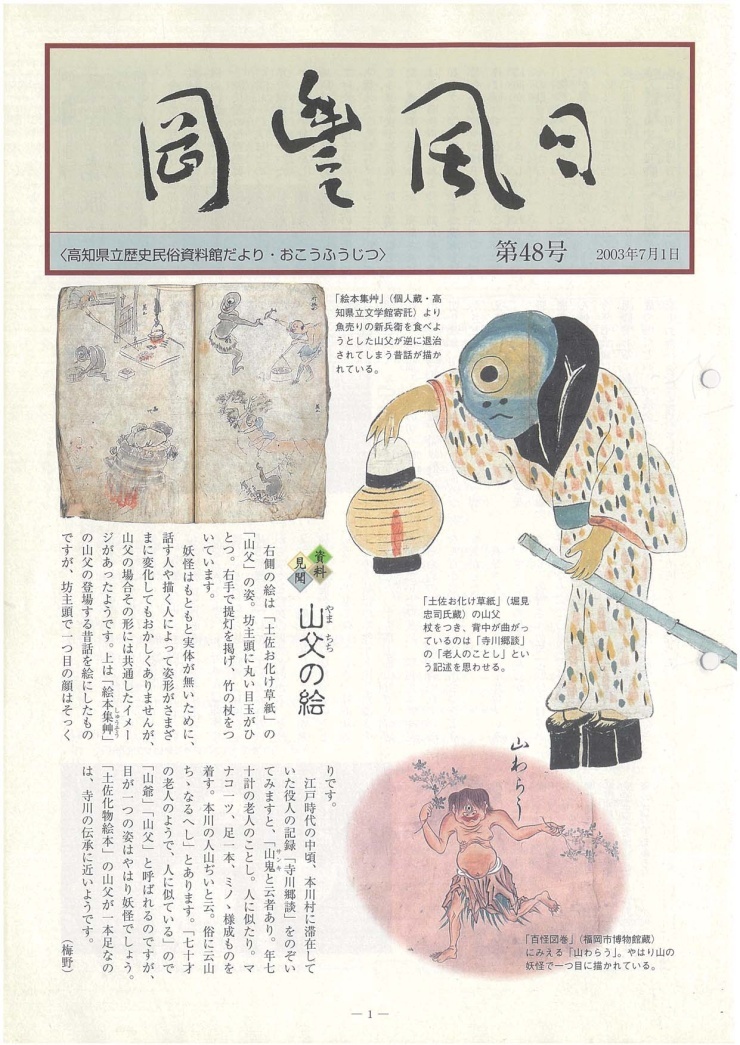 岡豊風日
〈高知県立歴史民俗資料館だより・おこうふうじつ〉
第48号
2003年7月1日
「絵本集艸」(個人蔵・高
知県立文学館寄託)より
魚売りの新兵衛を食べよ
うとした山父が逆に退治
されてしまう昔話が描か
れている。
「土佐お化け草紙」(堀見
忠司氏蔵)の山父
杖をつき、背中が曲がっ
ているのは「寺川郷談」
の「老人のことし」とい
う記述を思わせる。
資料
見聞
山父の絵
やま ちち
右側の絵は「土佐お化け草紙」の
「山父」の姿。坊主頭に丸い目玉がひ
とつ。右手で提灯を掲げ、竹の杖をつ
いています。
妖怪はもともと実体が無いために、
話す人や描く人によって姿形がさまざ
まに変化してもおかしくありませんが、
山父の場合その形には共通したイメー
ジがあったようです。上は「絵本集艸」
しゅうぞう
の山父の登場する昔話を絵にしたもの
ですが、坊主頭で一つ目の顔はそっく
りです。
江戸時代の中頃、本川村に滞在して
いた役人の記録「寺川郷談」をのぞい
てみますと、「山鬼と云者あり。年七
サンキ
十計の老人のことし。人に似たり。マ
ナコ一ツ、足一本、ミノゝ様成ものを
着す。本川の人山ぢいと云。俗に云山
ちゝなるへし」とあります。「七十才
の老人のようで、人に似ている」ので
「山爺」「山父」と呼ばれるのですが、
目が一つの姿はやはり妖怪でしょう。
「土佐化物絵本」の山父が一本足なの
は、寺川の伝承に近いようです。
(梅野)
山わらう
「百怪図巻」(福岡市博物館蔵)
にみえる「山わらう」。やはり山の
妖怪で一つ目に描かれている。
― 1 ―